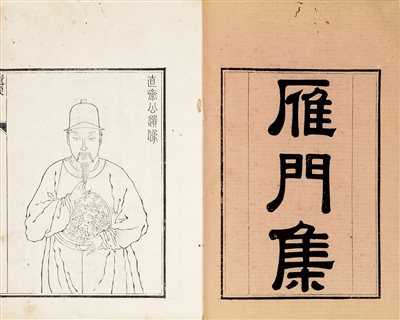 雁門集
直齋公遺像